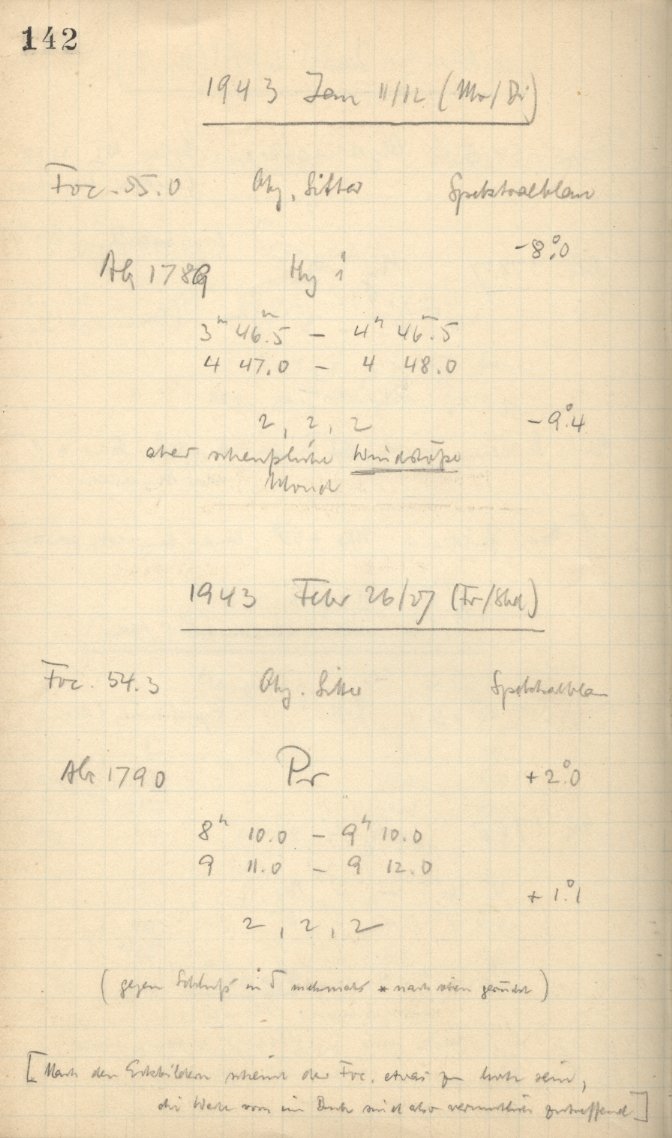 142
1943 Jan 11/12 (Mo/Di)
Foc. 55.0 Obj. Gitter Spektralblau
-8°.0
AG 1789 Hy i
3h 46m.5 – 4h 46m.5
4 47.0 – 4 48.0
2, 2, 2 -9°.4
aber scheußliche Windstöße
Mond
1943 Febr 26/27 (Fr/Sbd.)
Foc. 54.3 Obj. Gitter Spektralblau
1790 Pr +2°.0
8h 10.0 – 9h 10.0
9 11.0 – 9 12.0
+1°.1
2, 2, 2
(gegen Schluß in δ mehrmals * nach oben gerückt)
[Nach den Eckbildern scheint der Foc. etwas zu hoch sein,
die Werte vom im sind also vermutlich zutreffend]